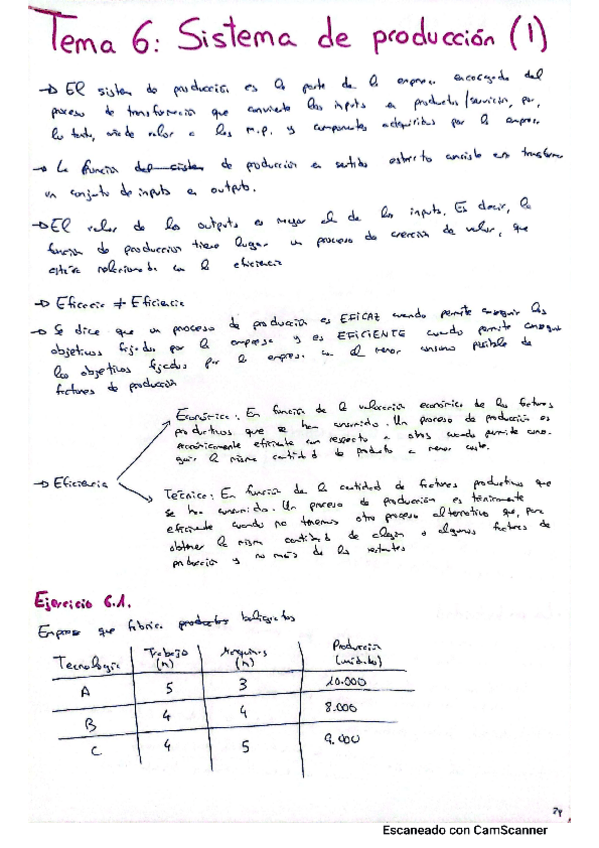 Tema 6: Sistema de producción (1)
→ El sistema de producción es la parte de la empresa encargada del
proceso de transformación que convierte los inputs en productos/servicios, por,
lo tanto, añade valor a las m.p. y componentes adquiridos por la empresa.
→ La función del sistem de producción en sentido estricto consiste en transformar
un conjunto de inputs en outputs.
→ El valor de los outputs es mayor al de los inputs. Es decir, la
función de producción tiene lugar un proceso de creación de valor, que
estará relacionado con la eficiencia
→ Eficacia ≠ Eficiencia
→ Se dice que un proceso de producción es EFICAZ cuando permite conseguir los
objetivos fijados por la empresa y es EFICIENTE cuando permite conseguir
los objetivos fijados por la empresa con el menor consumo posible de
factores de producción
Económica: En función de la valoración económica de los factores
productivos que se han consumido. Un proceso de producción es
económicamente eficiente con respecto a otros cuando permite conse-
guir la misma cantidad de producto a menor coste.
→ Eficiencia
Técnica: En función de la cantidad de factores productivos que
se ha consumido. Un proceso de producción es técnicamente
eficiente cuando no tenemos otro proceso alternativo que, para
obtener la misma cantidad de algún o algunos factores de
producción y no más de los restantes
Ejercicio 6.1.
Empresa que fabrica productos
Tecnología Trabajo (h) Máquinas (h) Producción (unidades)
A 5 3 10.000
B 4 4 8.000
C 4 5 9.000
24
Escaneado con CamScanner